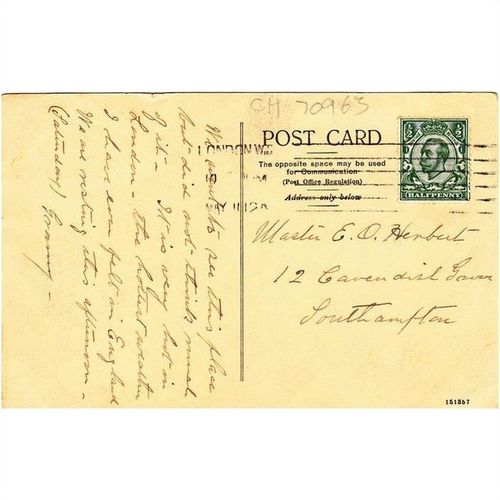 CH 70963
LONDON W.
MAY 11 12 A
POST CARD
The opposite space may be used
for Communication
(Post Office Regulation)
Address only below
HALFPENNY
We went to see this place
but did not think much
of it. It is very hot in
London - the hottest weather
I have ever felt in England
We are resting this afternoon -
(Saturday) Granny -
Master E. O. Herbert
12 Cavendish
Southampton
151357